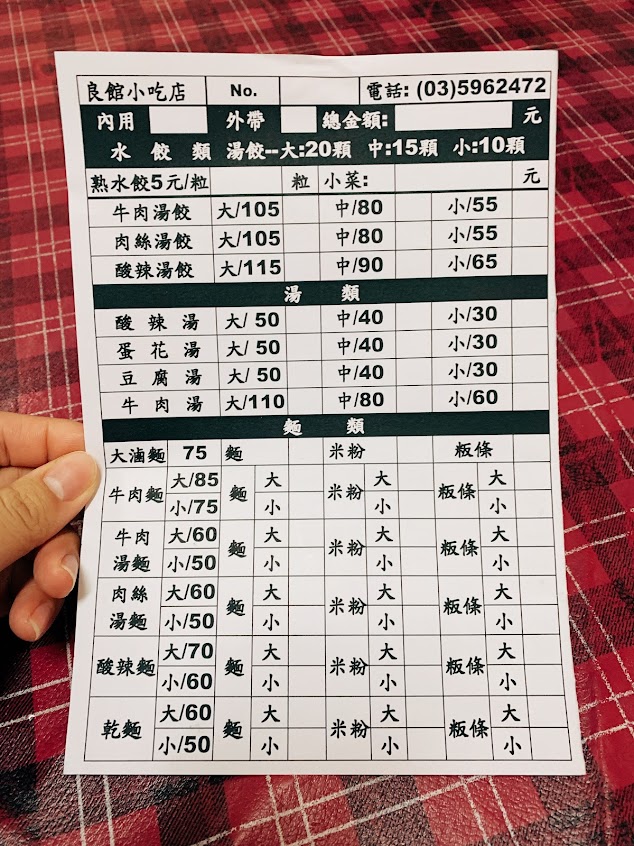 良館小吃店 No. 電話: (03)5962472
內用 外帶 總金額: 元
水餃類 湯餃--大:20顆 中:15顆 小:10顆
熟水餃5元/粒 粒 小菜: 元
牛肉湯餃 大/105 中/80 小/55
肉絲湯餃 大/105 中/80 小/55
酸辣湯餃 大/115 中/90 小/65
湯類
酸辣湯 大/ 50 中/40 小/30
蛋花湯 大/ 50 中/40 小/30
豆腐湯 大/ 50 中/40 小/30
牛肉湯 大/110 中/80 小/60
麵類
大滷麵 75 麵 米粉 粄條
牛肉麵 大/85 麵 大 米粉 大 粄條 大
小/75 小 小 小
牛肉 大/60 麵 大 米粉 大 粄條 大
湯麵 小/50 小 小 小
肉絲 大/60 麵 大 米粉 大 粄條 大
湯麵 小/50 小 小 小
酸辣麵 大/70 麵 大 米粉 大 粄條 大
小/60 小 小 小
乾麵 大/60 麵 大 米粉 大 粄條 大
小/50 小 小 小